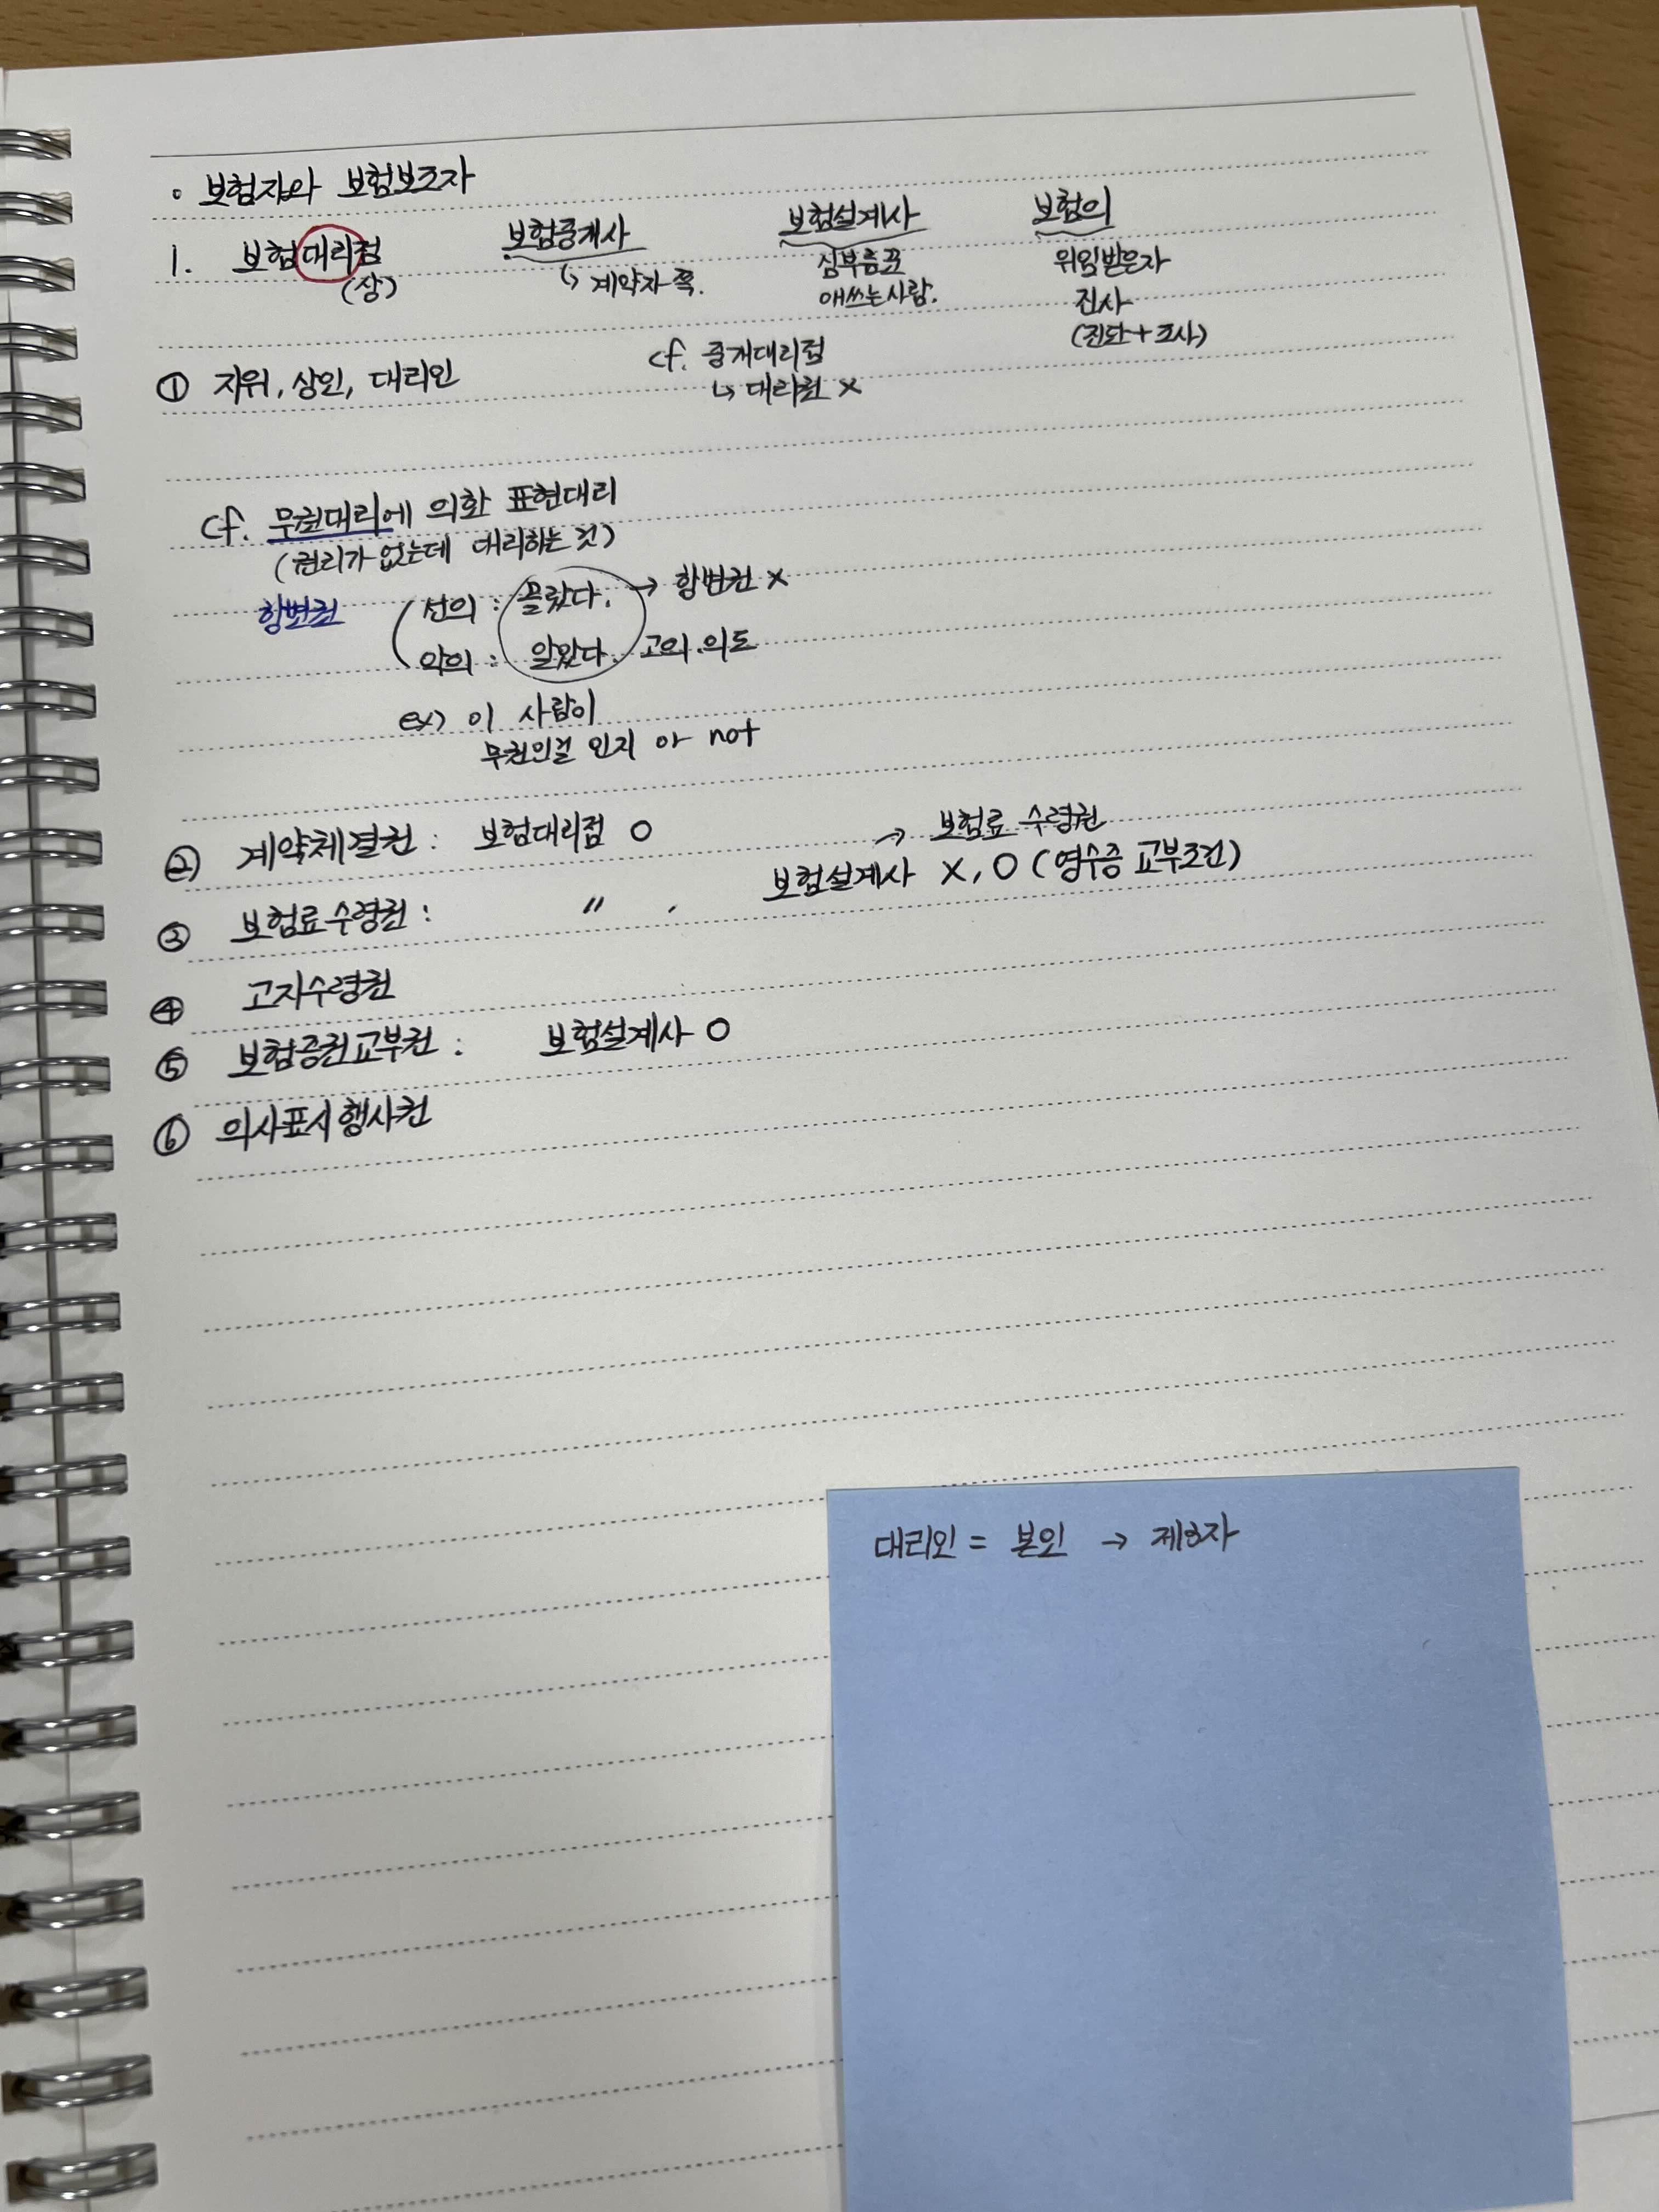 ◦ 보험자와 보험보조자
1. 보험대리점 보험중개사 보험설계사 보험의
(상) ↳ 계약자 쪽. 심부름꾼 위임받은자
애쓰는사람. 진사
(진단+조사)
① 지위, 상인, 대리인 cf. 중개대리점
↳ 대리권 ×
cf. 무권대리에 의한 표현대리
(권리가 없는데 대리하는 것)
항변권 선의 : 몰랐다. → 항변권 ×
악의 : 알았다. 고의.의도
ex) 이 사람이
무권인걸 인지 or not
→ 보험료 수령권
② 계약체결권 : 보험대리점 O 보험설계사 ×, O (영수증 교부조건)
③ 보험료수령권 : 〃 ,
④ 고지수령권
⑤ 보험증권교부권 : 보험설계사 O
⑥ 의사표시행사권
대리인 = 본인 → 제3자